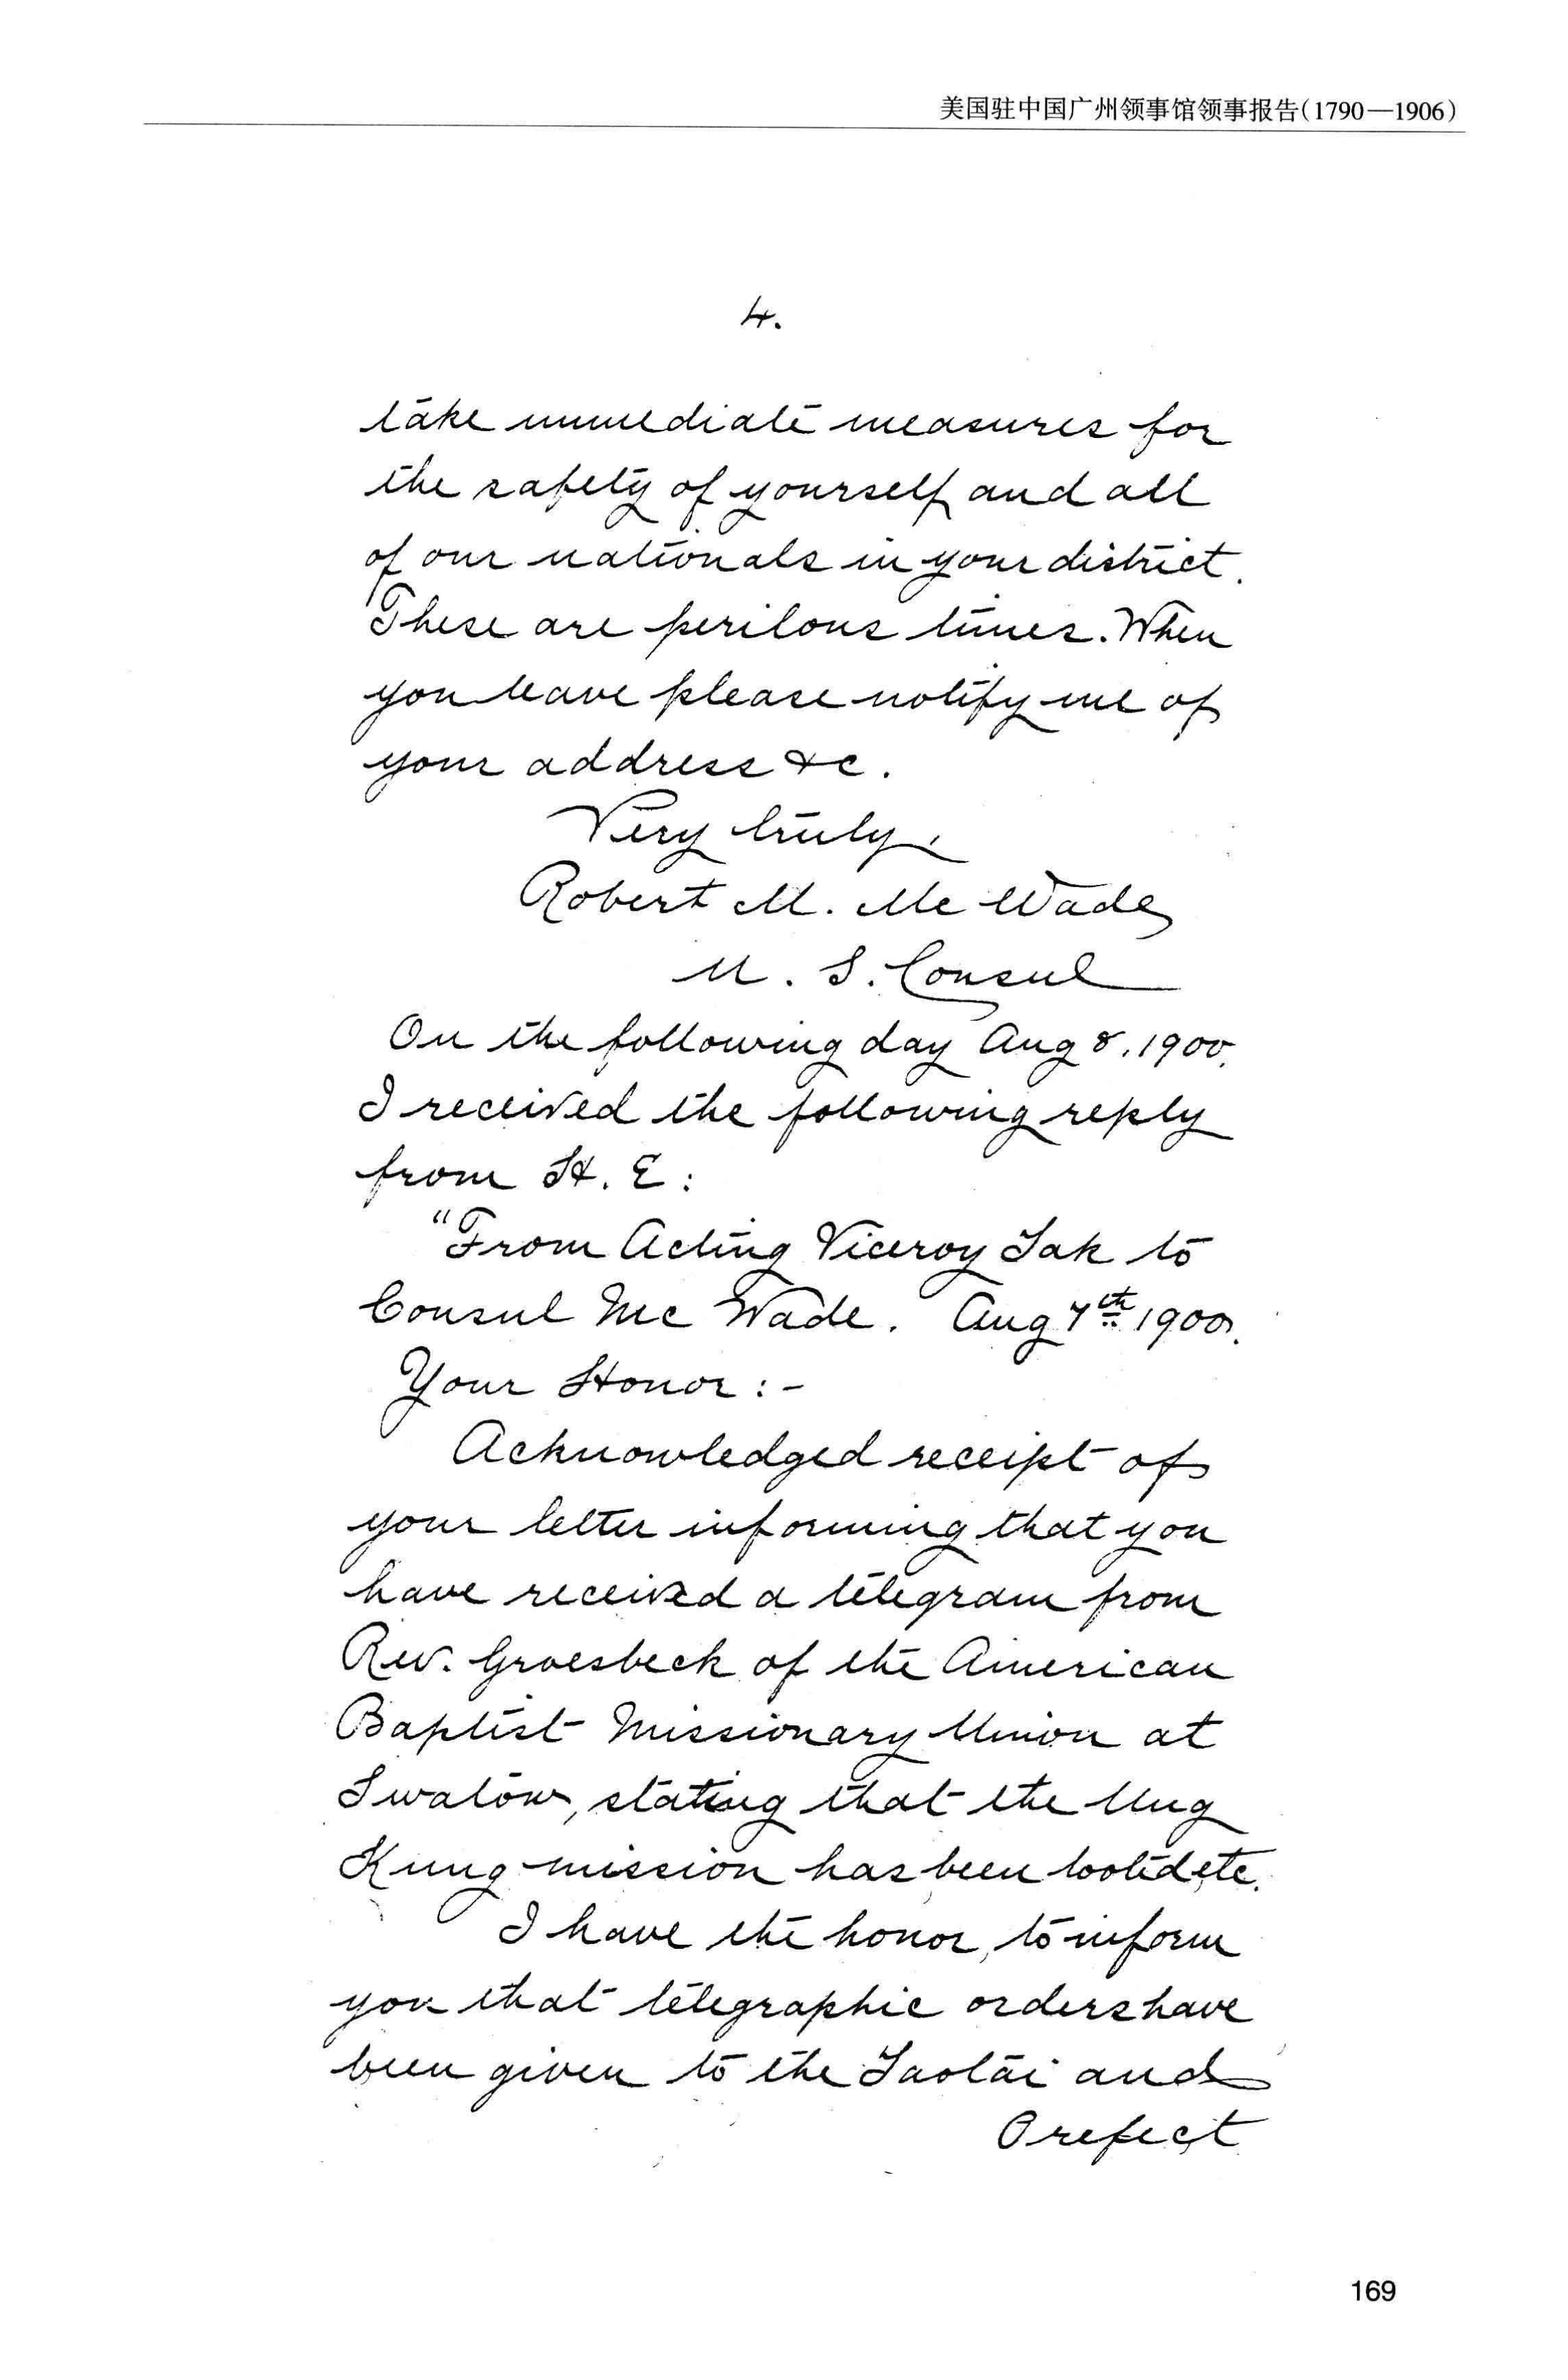 美国驻中国广州领事馆领事报告(1790—1906)
4.
take immediate measures for
the safety of yourself and all
of our nationals in your district.
These are perilous times. When
you leave please notify me of
your address &c.
Very truly,
Robert M. McWade
U. S. Consul
On the following day Aug 8, 1900,
I received the following reply
from H. E:
"From Acting Viceroy Tak to
Consul McWade. Aug 7th 1900.
Your Honor:-
Acknowledged receipt of
your letter informing that you
have received a telegram from
Rev. Groesbeck of the American
Baptist Missionary Union at
Swatow, stating that the Ung
Kung mission has been looted etc.
I have the honor, to inform
you that telegraphic orders have
been given to the Taotai and
Prefect
169